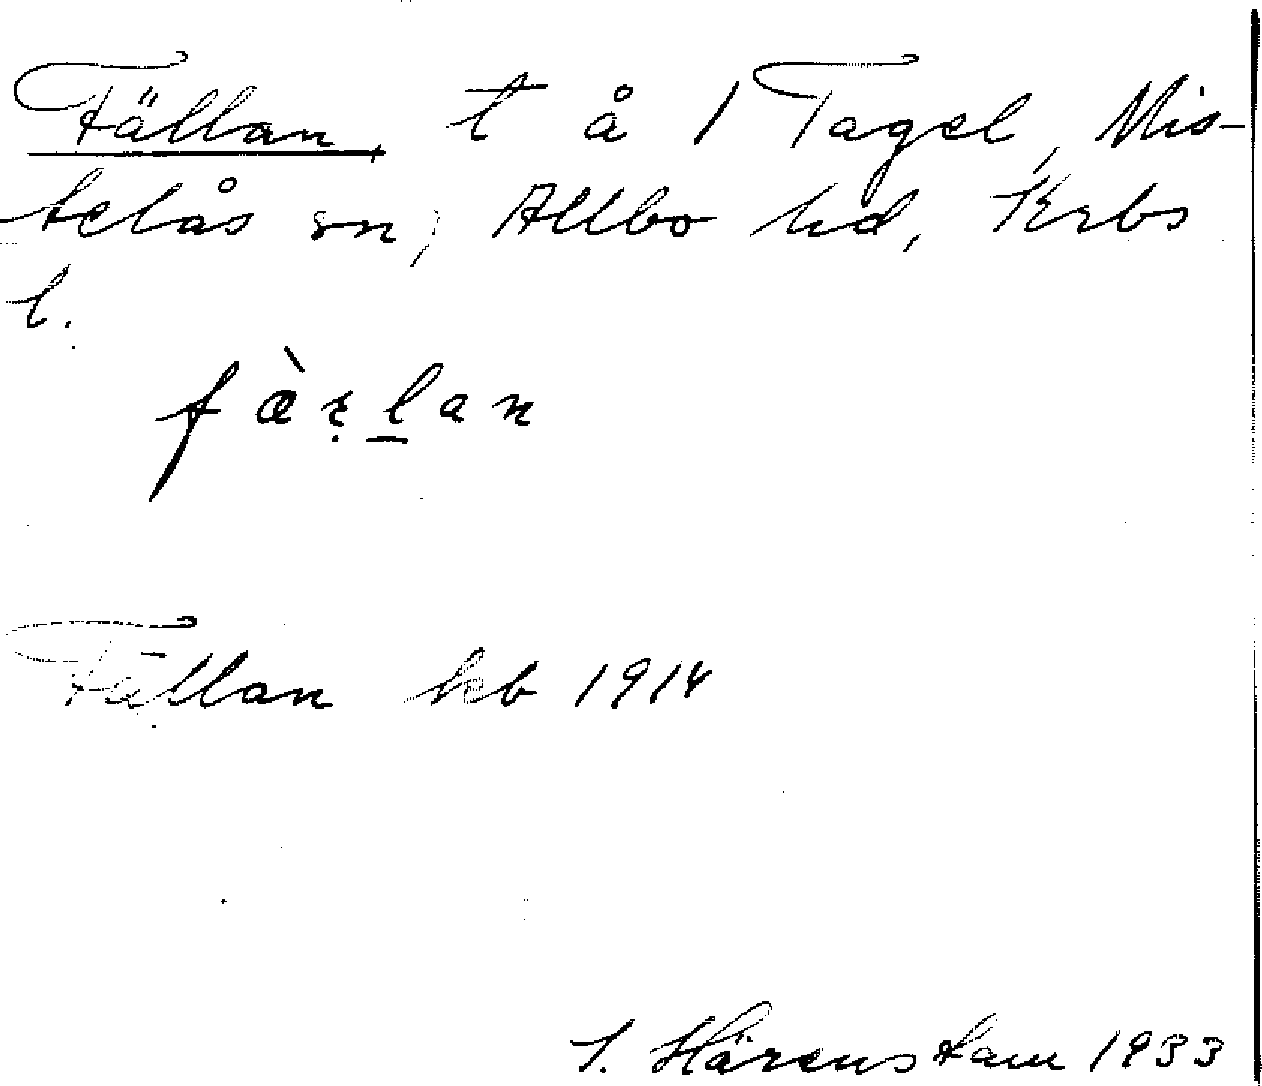 Fällan, t å 1 Tagel, Mis-
telås sn, Allbo hd, Krbs
l.
fæ̀ṛḻan
Fällan kb 1914
S. Härenstam 1933